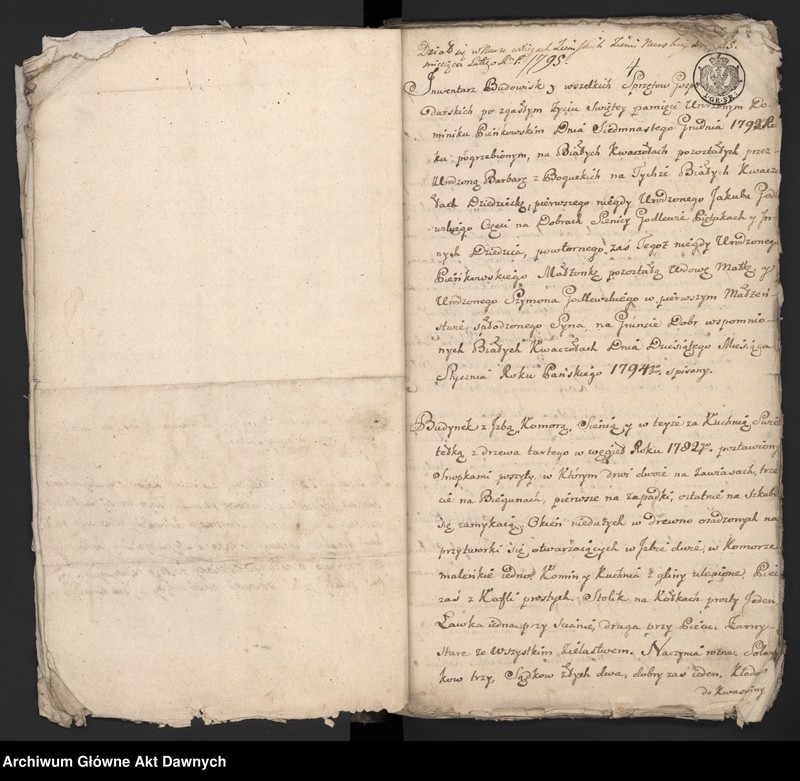 Działo się w Nurze w księgach Ziemskich Ziemi Nurskiej dnia
miesiąca Lutego R. P. 1795.
4
1 GR. SR.
Inwentarz Budowisk y wszelkich Sprzętow Gospo
Darskich po zgasłym życiu Swiętey pamięci Urodzonym Do-
miniku Pieńkowskim Dnia Siedmnastego Grudnia 1792 Ro
ku pogrzebionym, na Białych Kwaczołach pozostałych przez
Urodzoną Barbarę z Boguckich na Tychże Białych Kwaczo
łach Dziedzickę, pierwszego niegdy Urodzonego Jakuba Godle
wskiego Części na Dobrach Pienicy Godlewie Pieżakach y In-
nych Dziedzica, powtornego zaś Tegoż niegdy Urodzonego
Pieńkowskiego Małżonkę pozostałą Wdowę Matkę, y
Urodzonego Szymona Godlewskiego w pierwszym Małżeń-
stwie spłodzonego Syna, na Gruncie Dobr wspomnio-
nych Białych Kwaczołach Dnia Dziesiątego Miesiąca
Stycznia Roku Pańskiego 1794go spisany.
Budynek z Izbą, Komorą, Sienią, y w teyże za Kuchnią Swie
tełką z drzewa tartego w węgieł Roku 1782go. postawiony
Snopkami poszyty, w Którym drzwi dwoie na Zawiasach, trze
cie na Biegunach, pierwsze na zapadki, ostatnie na Szkubel
się zamykaią. Okien niedużych w drewno osadzonych na
przytworki się otwarzaiących w Izbie dwie, w Komorze
maleńkie iedno, Komin y Kuchnia z gliny ulepione, Piec
zaś z Kafli prostych. Stolik na Kółkach prosty Jeden
Ławka iedna przy scianie, druga przy Piecu. Żarny
Stare ze wszystkim żelastwem. Naczynia rożne. Solan
kow trzy, Sądkow złych dwa, dobry zaś ieden. Kłoda
do Kwasziny
Archiwum Główne Akt Dawnych